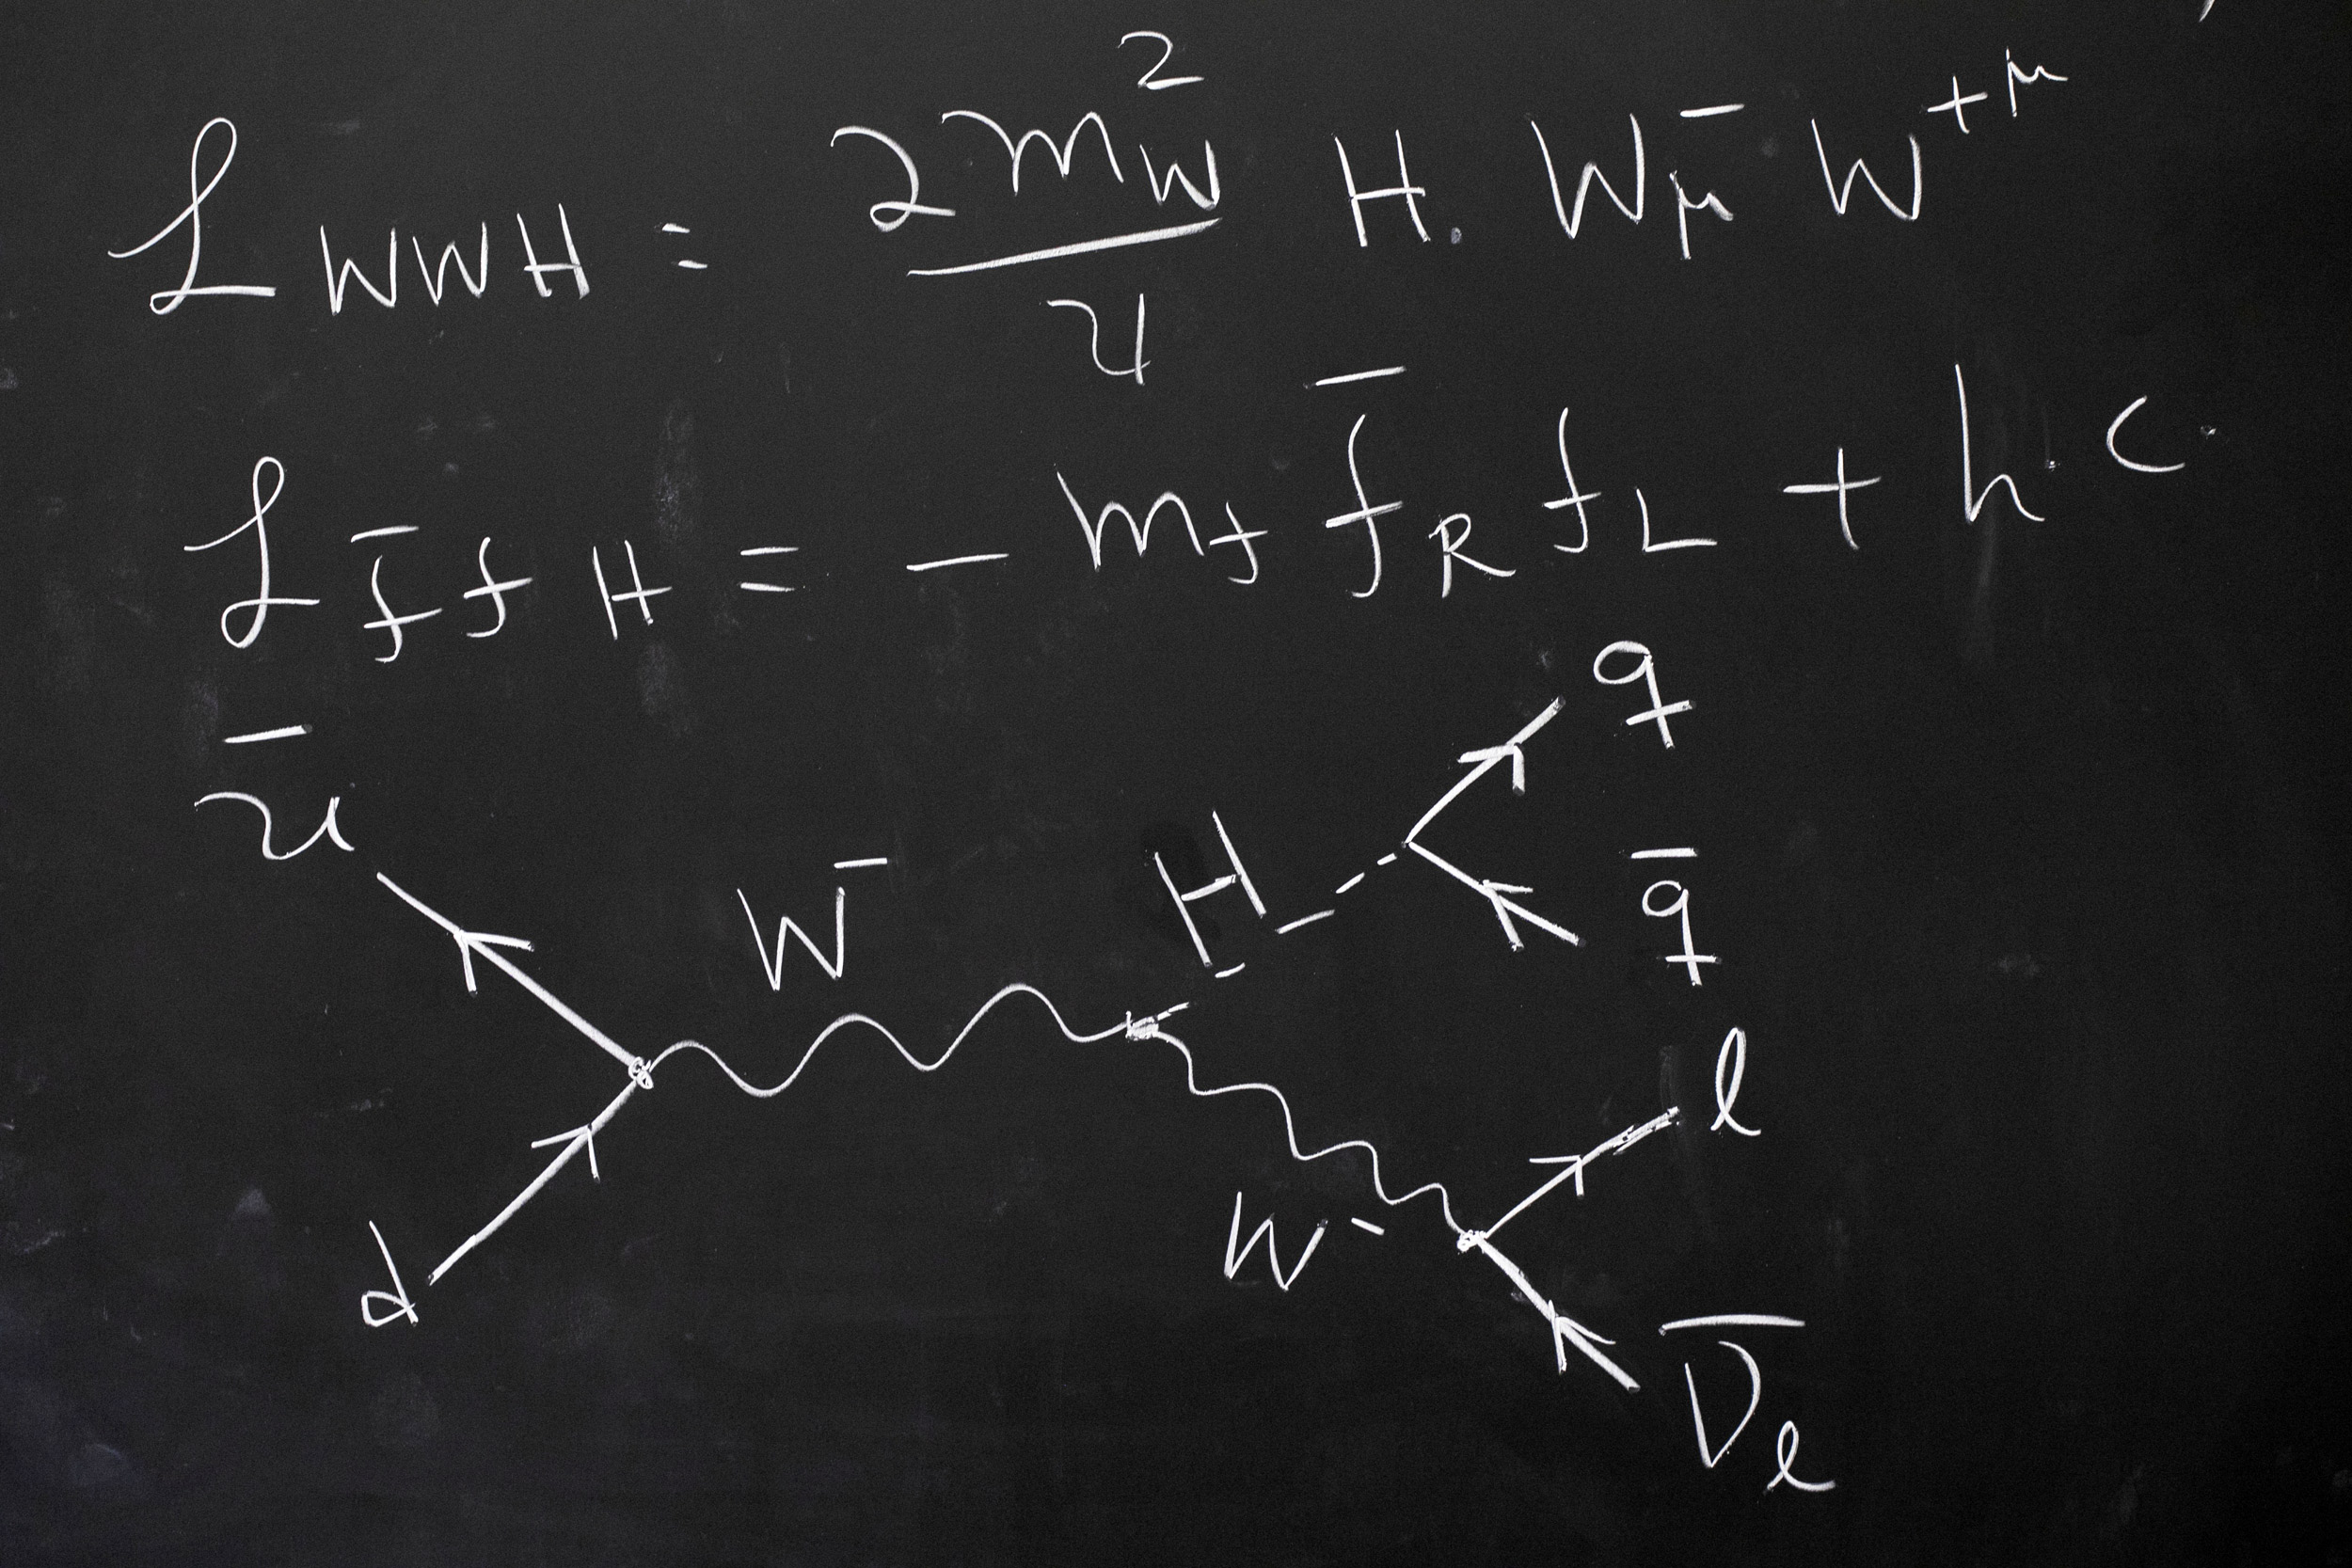 ℒ_WWH = 2m_W² / υ H. W⁻_μ W⁺^μ
ℒ_f̄fH = − m_f f̄_R f_L + h.c.
q
ū
W⁻
H
q̄
l
W⁻
d
ν̄_l